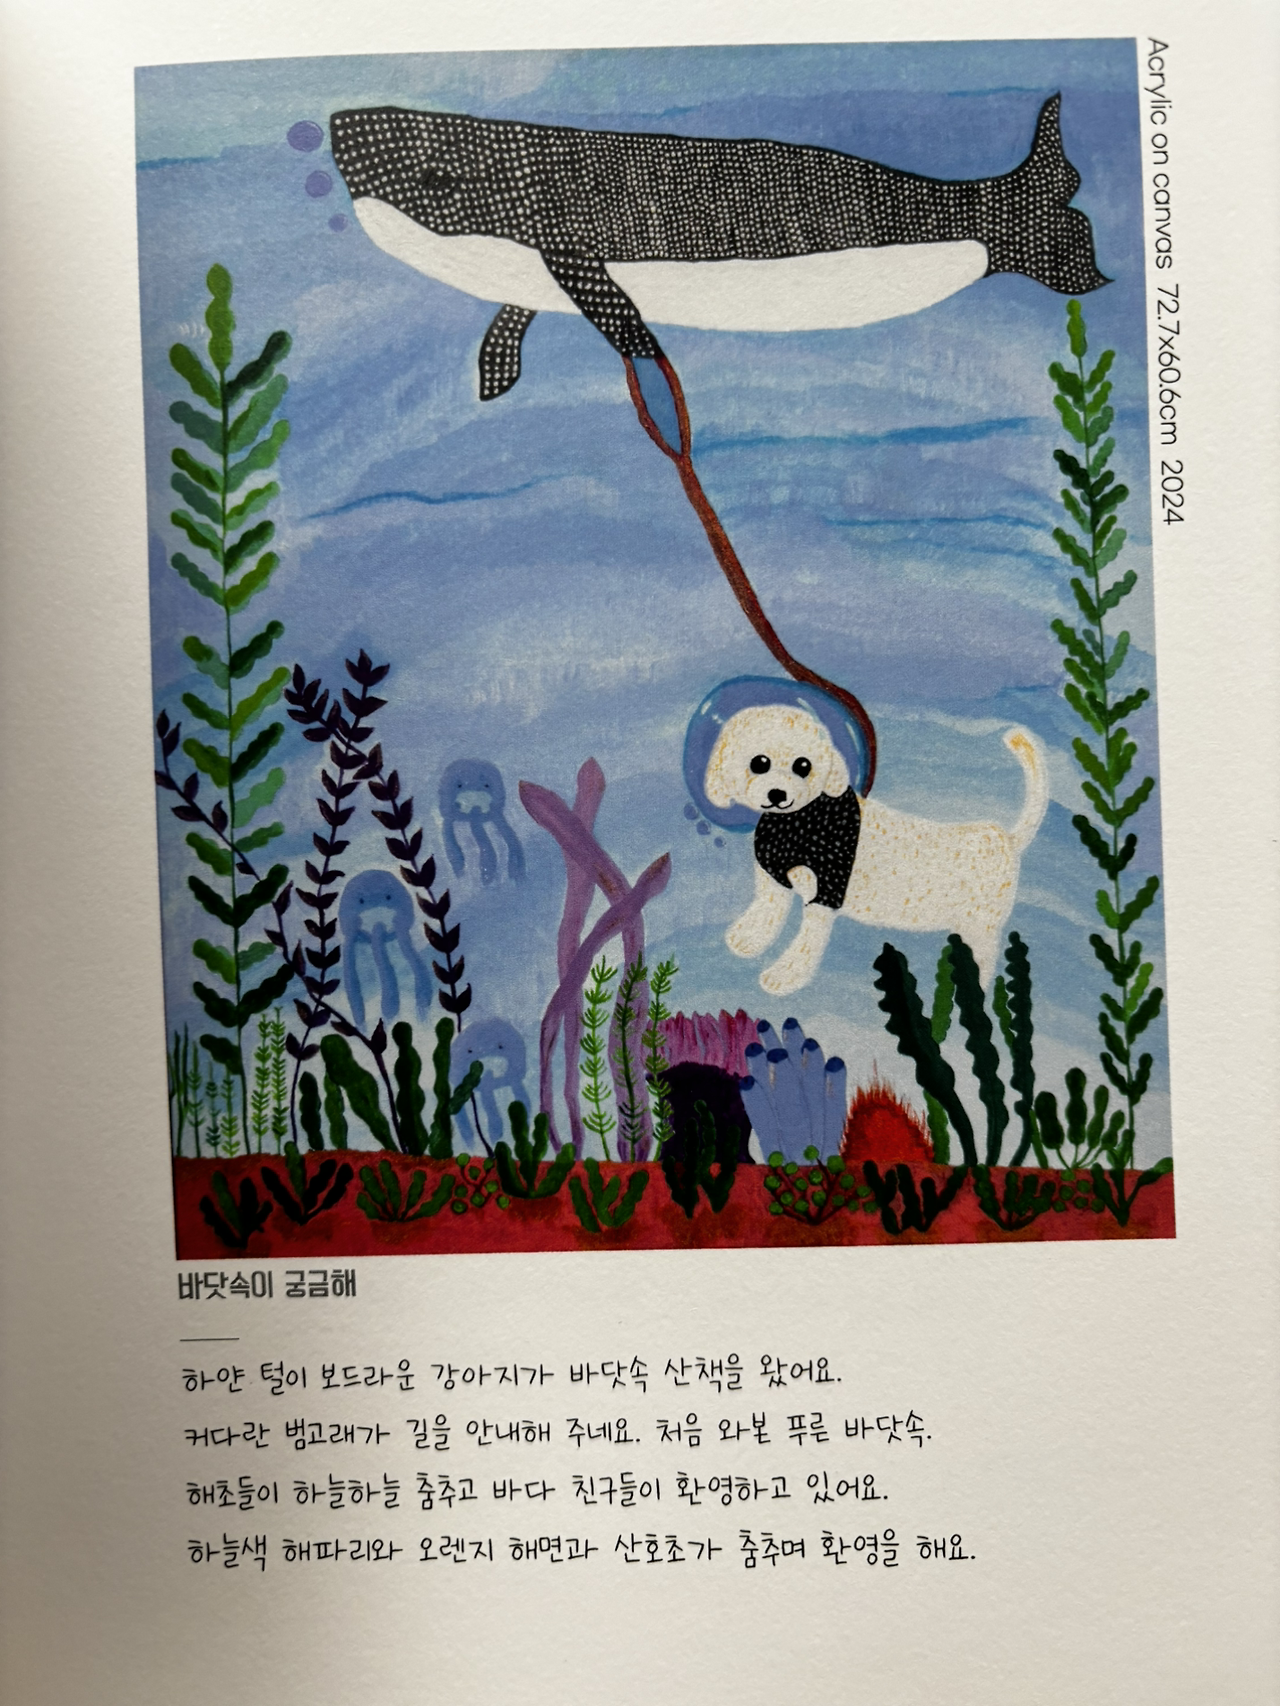 Acrylic on canvas 72.7x60.6cm 2024
바닷속이 궁금해
하얀 털이 보드라운 강아지가 바닷속 산책을 왔어요.
커다란 범고래가 길을 안내해 주네요. 처음 와본 푸른 바닷속.
해초들이 하늘하늘 춤추고 바다 친구들이 환영하고 있어요.
하늘색 해파리와 오렌지 해면과 산호초가 춤추며 환영을 해요.